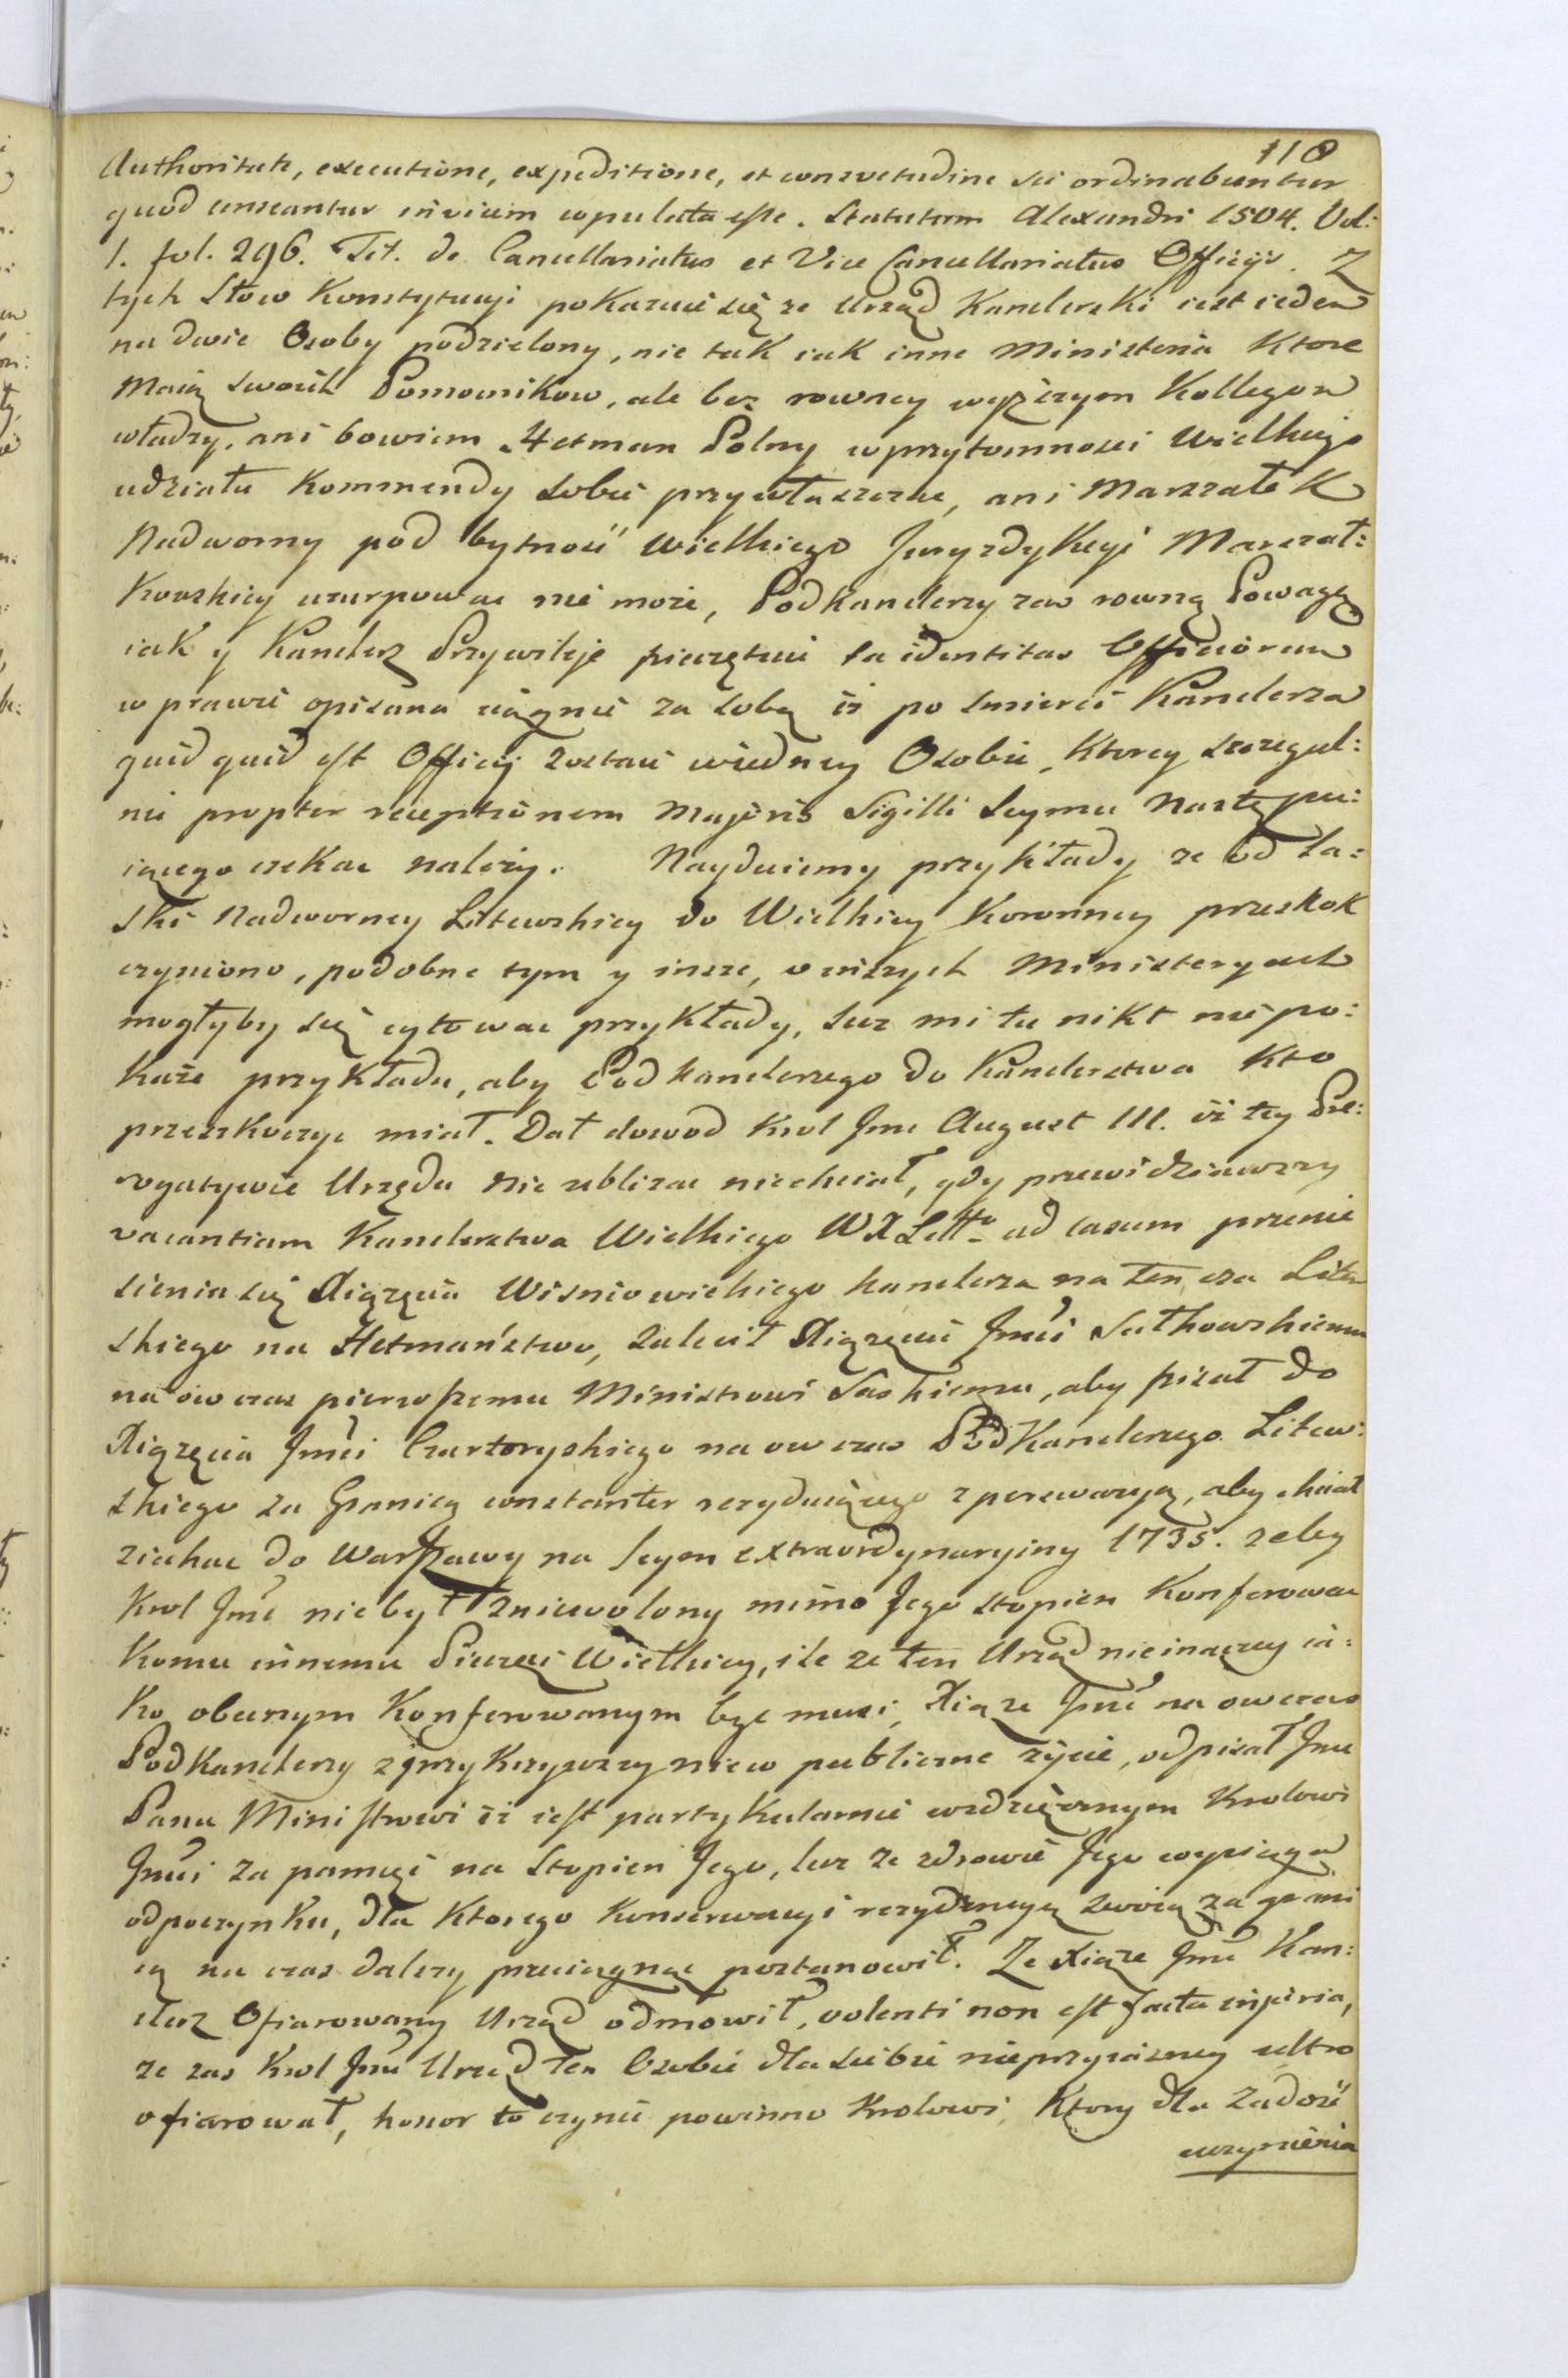 118
Authoritate, executione, expeditione, et consvetudine sic ordinabuntur
quod censeantur invicem copulata esse. Statutum Alexandri 1504. Vol:
1. fol. 296. Tit. de Cancellariatus et Vice Cancellariatus Officijs. Z
tych Słow Konstytucyi pokazuie się ze Urząd Kanclerski iest ieden
na dwie Osoby podzielony, nie tak iak inne Ministeria Ktore
Maią swoich Pomocnikow, ale bez rowney wyższym Kollegom
władzy, ani bowiem Hetman Polny w przytomnosci Wielkiego
udziału Kommendy sobie przywłaszczac, ani Marszałek
Nadworny pod bytność Wielkiego Juryzdykcyi Marszał:
Kowskiey uzurpowac nie może, Podkanclerzy zas rowną Powagą
iak y Kanclerz Przywileje pieczętuie ta identitas Officiorum
w prawie opisana ciągnie za sobą iż po smierci Kanclerza
quid quid est Officij zostaie w iedney Osobie, Ktorey szczegul:
nie propter receptionem Majoris Sigilli Seymu Nastę pu:
iącego czekac należy. Nayduiemy przykłady ze od La:
ski Nadworney Litewskiey do Wielkiey Koronney przeskok
czyniono, podobne tym y insze, w inszych Ministeryach
mogłyby się cytowac przykłady, lecz mi tu nikt nie po:
każe przykładu, aby Podkanclerzego do Kanclerstwa Kto
przeskoczyc miał. Dał dowod Krol Jmc August III. iż tey Pre:
rogatywie Urzędu nic ubliżac niechciał, gdy przewidziawszy
vacantiam Kanclerstwa Wielkiego WXLitt<sup>o</sup> ad casum przenie
sienia się Xiążęcia Wisniowieckiego kanclerza na ten cza Litew
skiego na Hetmaństwo, zalecił Xiążęciu Jmći Sułkowskiemu
na ow czas pierwszemu Ministrowi Saskiemu, aby pisał do
Xiążęcia Jmći Czartoryskiego na ow czas PodKanclerzego Litew:
skiego za Granicą constanter rezyduiącego z perswazyą, aby chciał
ziechac do Warszawy na Seym extraordynaryiny 1735. zeby
Krol Jmć nie był zniewolony mimo Jego stopien Konferowac
Komu innemu Pieczęć Wielkiey, ile ze ten Urząd nieinaczey ia:
Ko obecnym Konferowanym byc musi, Xiąze Jmć na owczas
Podkanclerzy zprzykrzywszy niew publiczne życie, odpisał Jmc
Panu Ministrowi iż iest partykularnie wdzięcznym Krolowi
Jmći za pamięć na Stopien Jego, lecz ze zdrowie Jego wyciąga
odpoczynku, dla Ktorego Konserwacyi rezydencyą swoią za grani
cą na czas dalszy przeciągnąc postanowił. Ze Xiąze Jmć Kan:
clerz Ofiarowany Urząd odmowił, volenti non est facta injuria,
ze zas Krol Jmć Urząd ten Osobie dla siebie nieprzyiazney ultro
ofiarował, honor to czynic powinno Krolowi, Ktory dla Zadość
uczynienia